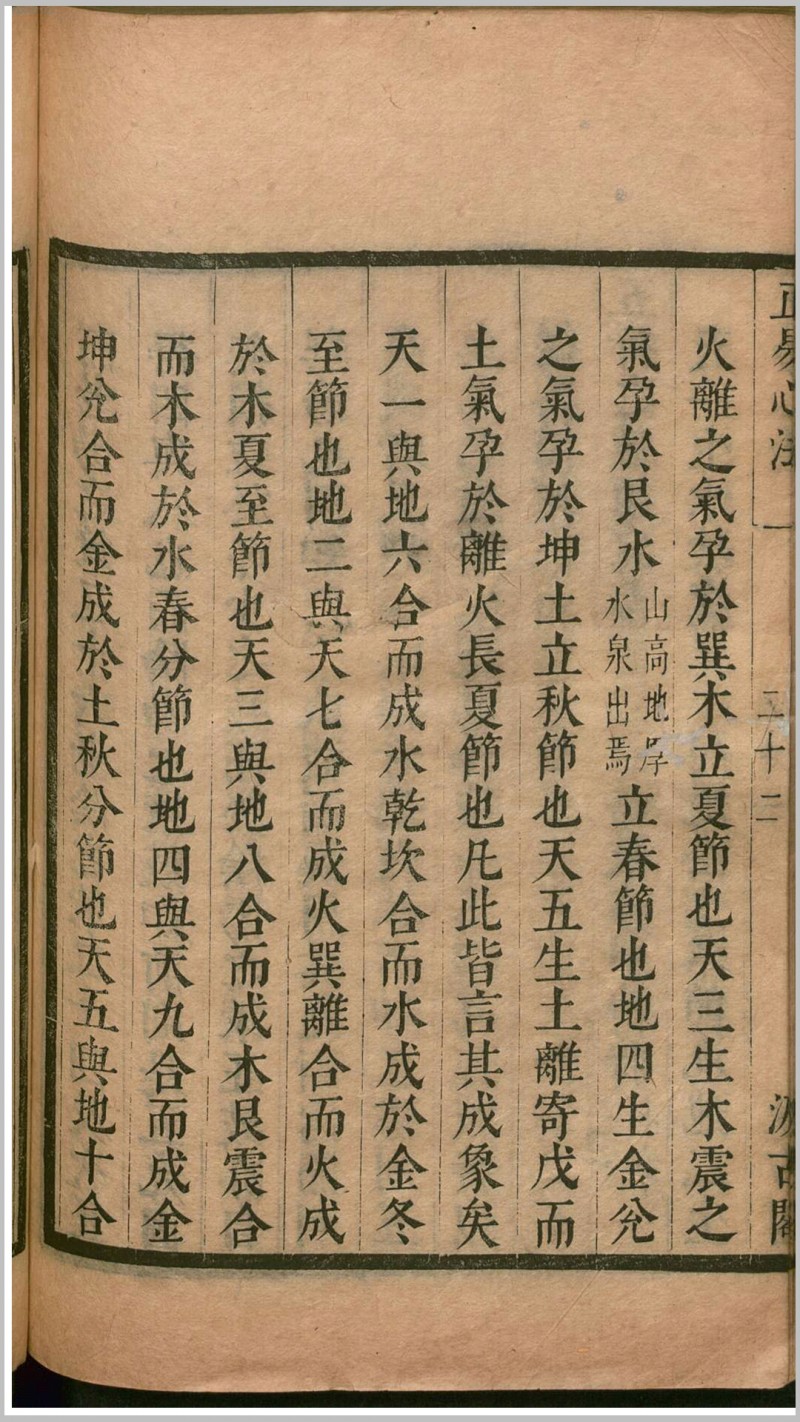 正易心法 一 二十二 汲古閣
火離之氣孕於巽木立夏節也天三生木震之
氣孕於艮水山高地厚水泉出焉立春節也地四生金兊
之氣孕於坤土立秋節也天五生土離寄戊而
土氣孕於離火長夏節也凡此皆言其成象矣
天一與地六合而成水乾坎合而水成於金冬
至節也地二與天七合而成火巽離合而火成
於木夏至節也天三與地八合而成木艮震合
而木成於水春分節也地四與天九合而成金
坤兊合而金成於土秋分節也天五與地十合